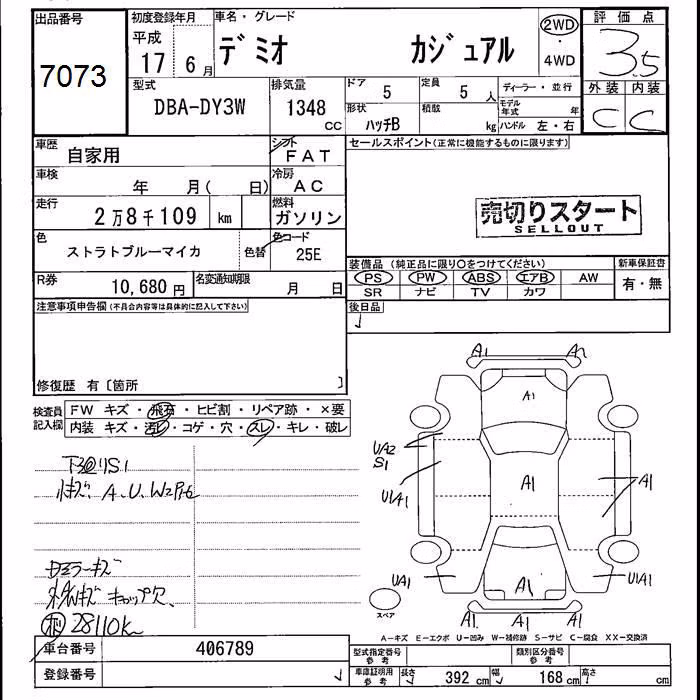 出品番号
7073
初度登録年月
平成
17 6月
車名・グレード
デミオ カジュアル
2WD
・
4WD
評価点
3.5
外装 内装
C C
型式
DBA-DY3W
排気量
1348
CC
ドア
5
定員
5 人
形状
ハッチB
積載
kg
ディーラー・並行
モデル年式 年
ハンドル 左・右
車歴
自家用
シフト
FAT
車検
年 月( 日)
冷房
AC
走行
2万8千109 km
燃料
ガソリン
色
ストラトブルーマイカ
色替
色コード
25E
R券
10,680円
名変通知期限
月 日
セールスポイント(正常に機能するものに限ります)
売切りスタート
SELLOUT
装備品 (純正品に限り○をつけてください)
新車保証書
PS PW ABS エアB AW
SR ナビ TV カワ
有・無
後日品
注意事項申告欄(不具合内容等は具体的に記入して下さい)
修復歴 有〔箇所 〕
検査員記入欄
FW キズ・飛石・ヒビ割・リペア跡・×要
内装 キズ・汚レ・コゲ・穴・スレ・キレ・破レ
下廻リS1
A.U.W2
ミラーキズ
キャップ欠
28110k
A1 A2
A1
UA2
S1
U1A1
A1
A1
UA1
A1
U1A1
A1 A1 A1
スペア
A-キズ E-エクボ U-凹み W-補修跡 S-サビ C-腐食 XX-交換済
車台番号
406789
登録番号
型式指定番号
参考
類別区分番号
参考
車庫証明用
参考
長さ 392 cm
幅 168 cm
高さ cm